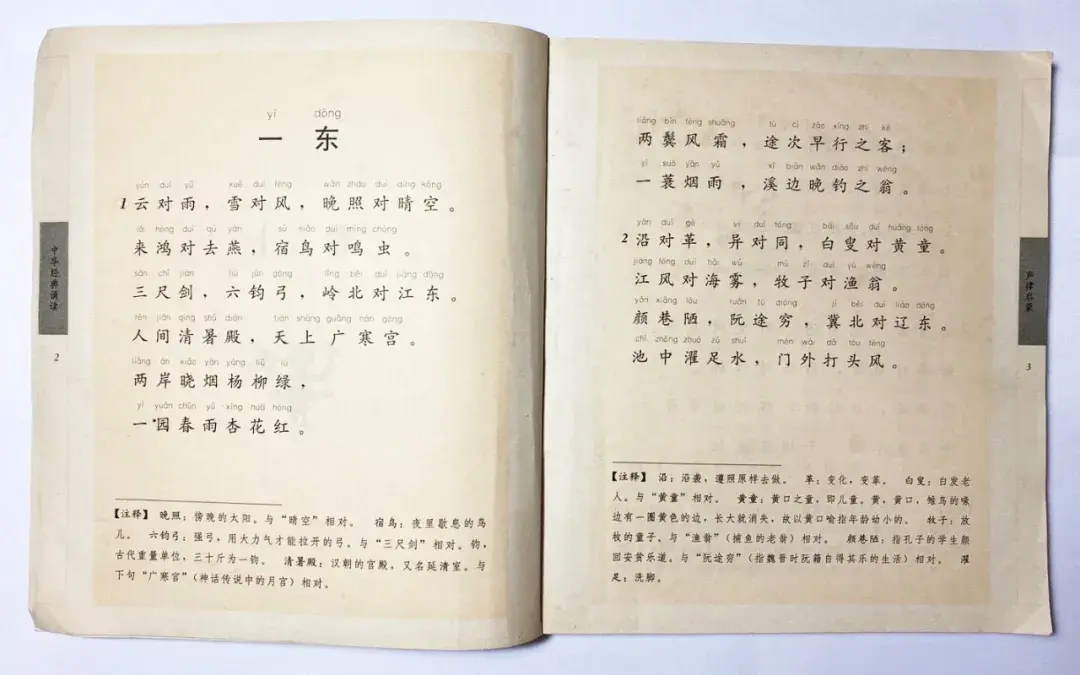 中华经典诵读
2
yī dōng
一 东
yún duì yǔ xuě duì fēng wǎn zhào duì qíng kōng
1 云对雨，雪对风，晚照对晴空。
lái hóng duì qù yàn sù niǎo duì míng chóng
来鸿对去燕，宿鸟对鸣虫。
sān chǐ jiàn liù jūn gōng lǐng běi duì jiāng dōng
三尺剑，六钧弓，岭北对江东。
rén jiān qīng shǔ diàn tiān shàng guǎng hán gōng
人间清暑殿，天上广寒宫。
liǎng àn xiǎo yān yáng liǔ lǜ
两岸晓烟杨柳绿，
yì yuán chūn yǔ xìng huā hóng
一园春雨杏花红。
【注释】 晚照：傍晚的太阳。与“晴空”相对。 宿鸟：夜里歇息的鸟
儿。 六钧弓：强弓，用大力气才能拉开的弓。与“三尺剑”相对。钧，
古代重量单位，三十斤为一钧。 清暑殿：汉朝的宫殿，又名延清室。与
下句“广寒宫”（神话传说中的月宫）相对。
liǎng bìn fēng shuāng tú cì zǎo xíng zhī kè
两鬓风霜，途次早行之客；
yì suō yān yǔ xī biān wǎn diào zhī wēng
一蓑烟雨，溪边晚钓之翁。
yán duì gé yì duì tóng bái sǒu duì huáng tóng
2 沿对革，异对同，白叟对黄童。
jiāng fēng duì hǎi wù mù zǐ duì yú wēng
江风对海雾，牧子对渔翁。
yán xiàng lòu ruǎn tú qióng jì běi duì liáo dōng
颜巷陋，阮途穷，冀北对辽东。
chí zhōng zhuó zú shuǐ mén wài dǎ tóu fēng
池中濯足水，门外打头风。
【注释】 沿：沿袭，遵照原样去做。 革：变化，变革。 白叟：白发老
人。与“黄童”相对。 黄童：黄口之童，即儿童。黄，黄口，雏鸟的喙
边有一圈黄色的边，长大就消失，故以黄口喻指年龄幼小的。 牧子：放
牧的童子。与“渔翁”（捕鱼的老翁）相对。 颜巷陋：指孔子的学生颜
回安贫乐道。与“阮途穷”（指魏晋时阮籍自得其乐的生活）相对。 濯
足：洗脚。
声律启蒙
3